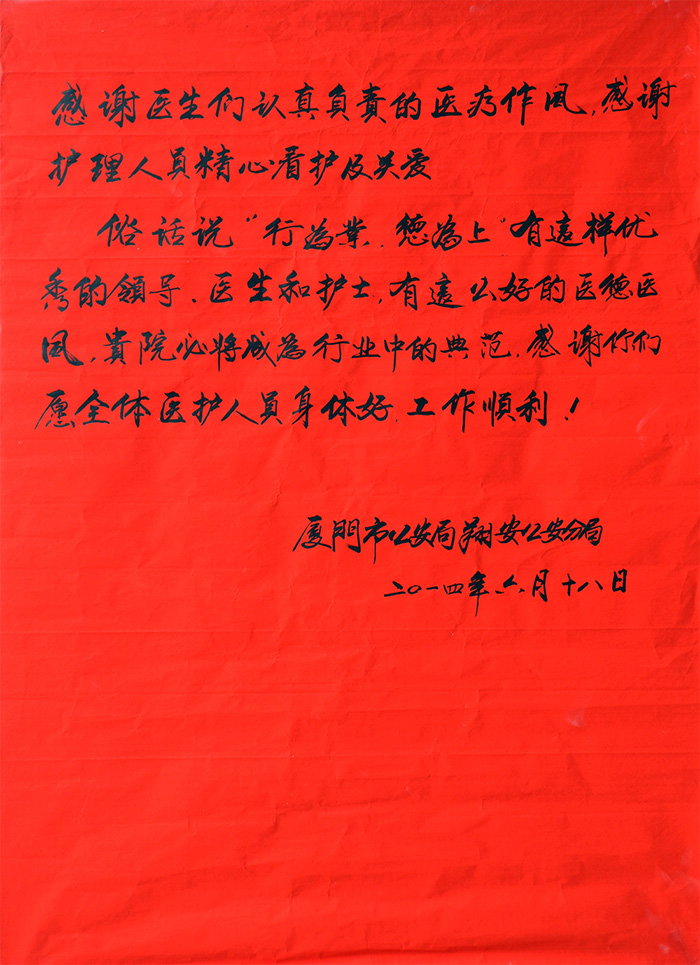 感谢医生们认真负責的医疗作风,感谢
护理人员精心看护及关爱
俗话说“行為業.德為上”有這样优
秀的領导、医生和护士,有這么好的医德医
风,貴院必将成為行业中的典范.感谢你们
愿全体医护人员身体好.工作順利!
厦門市公安局翔安公安分局
二〇一四年六月十八日